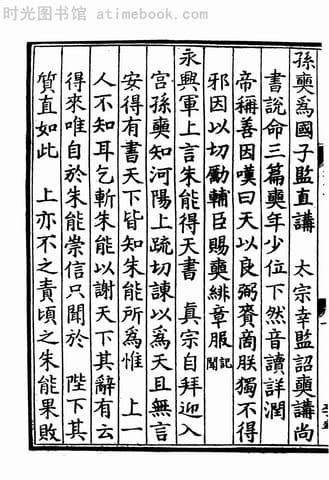 时光图书馆 atimebook.com
孫奭爲國子監直講　太宗幸監詔奭講尚
書說命三篇奭年少位下然音讀詳潤
帝稱善因嘆曰天以良弼賚商朕獨不得
邪因以切勵輔臣賜奭緋章服記聞
永興軍上言朱能得天書　真宗自拜迎入
宮孫奭知河陽上疏切諫以爲天且無言
安得有書天下皆知朱能所爲惟　上一
人不知耳乞斬朱能以謝天下其辭有云
得來唯自於朱能崇信只聞於　陛下其
質直如此　上亦不之責頃之朱能果敗